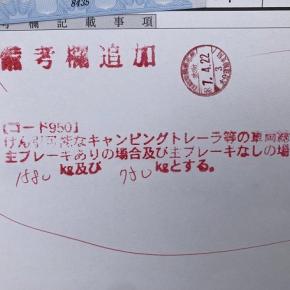 8435
考欄記載事項
備考欄追加
7.4.22
[コード950]
けん引可能なキャンピングトレーラ等の車両総
主ブレーキありの場合及び主ブレーキなしの場
1580 kg及び 750 kgとする。